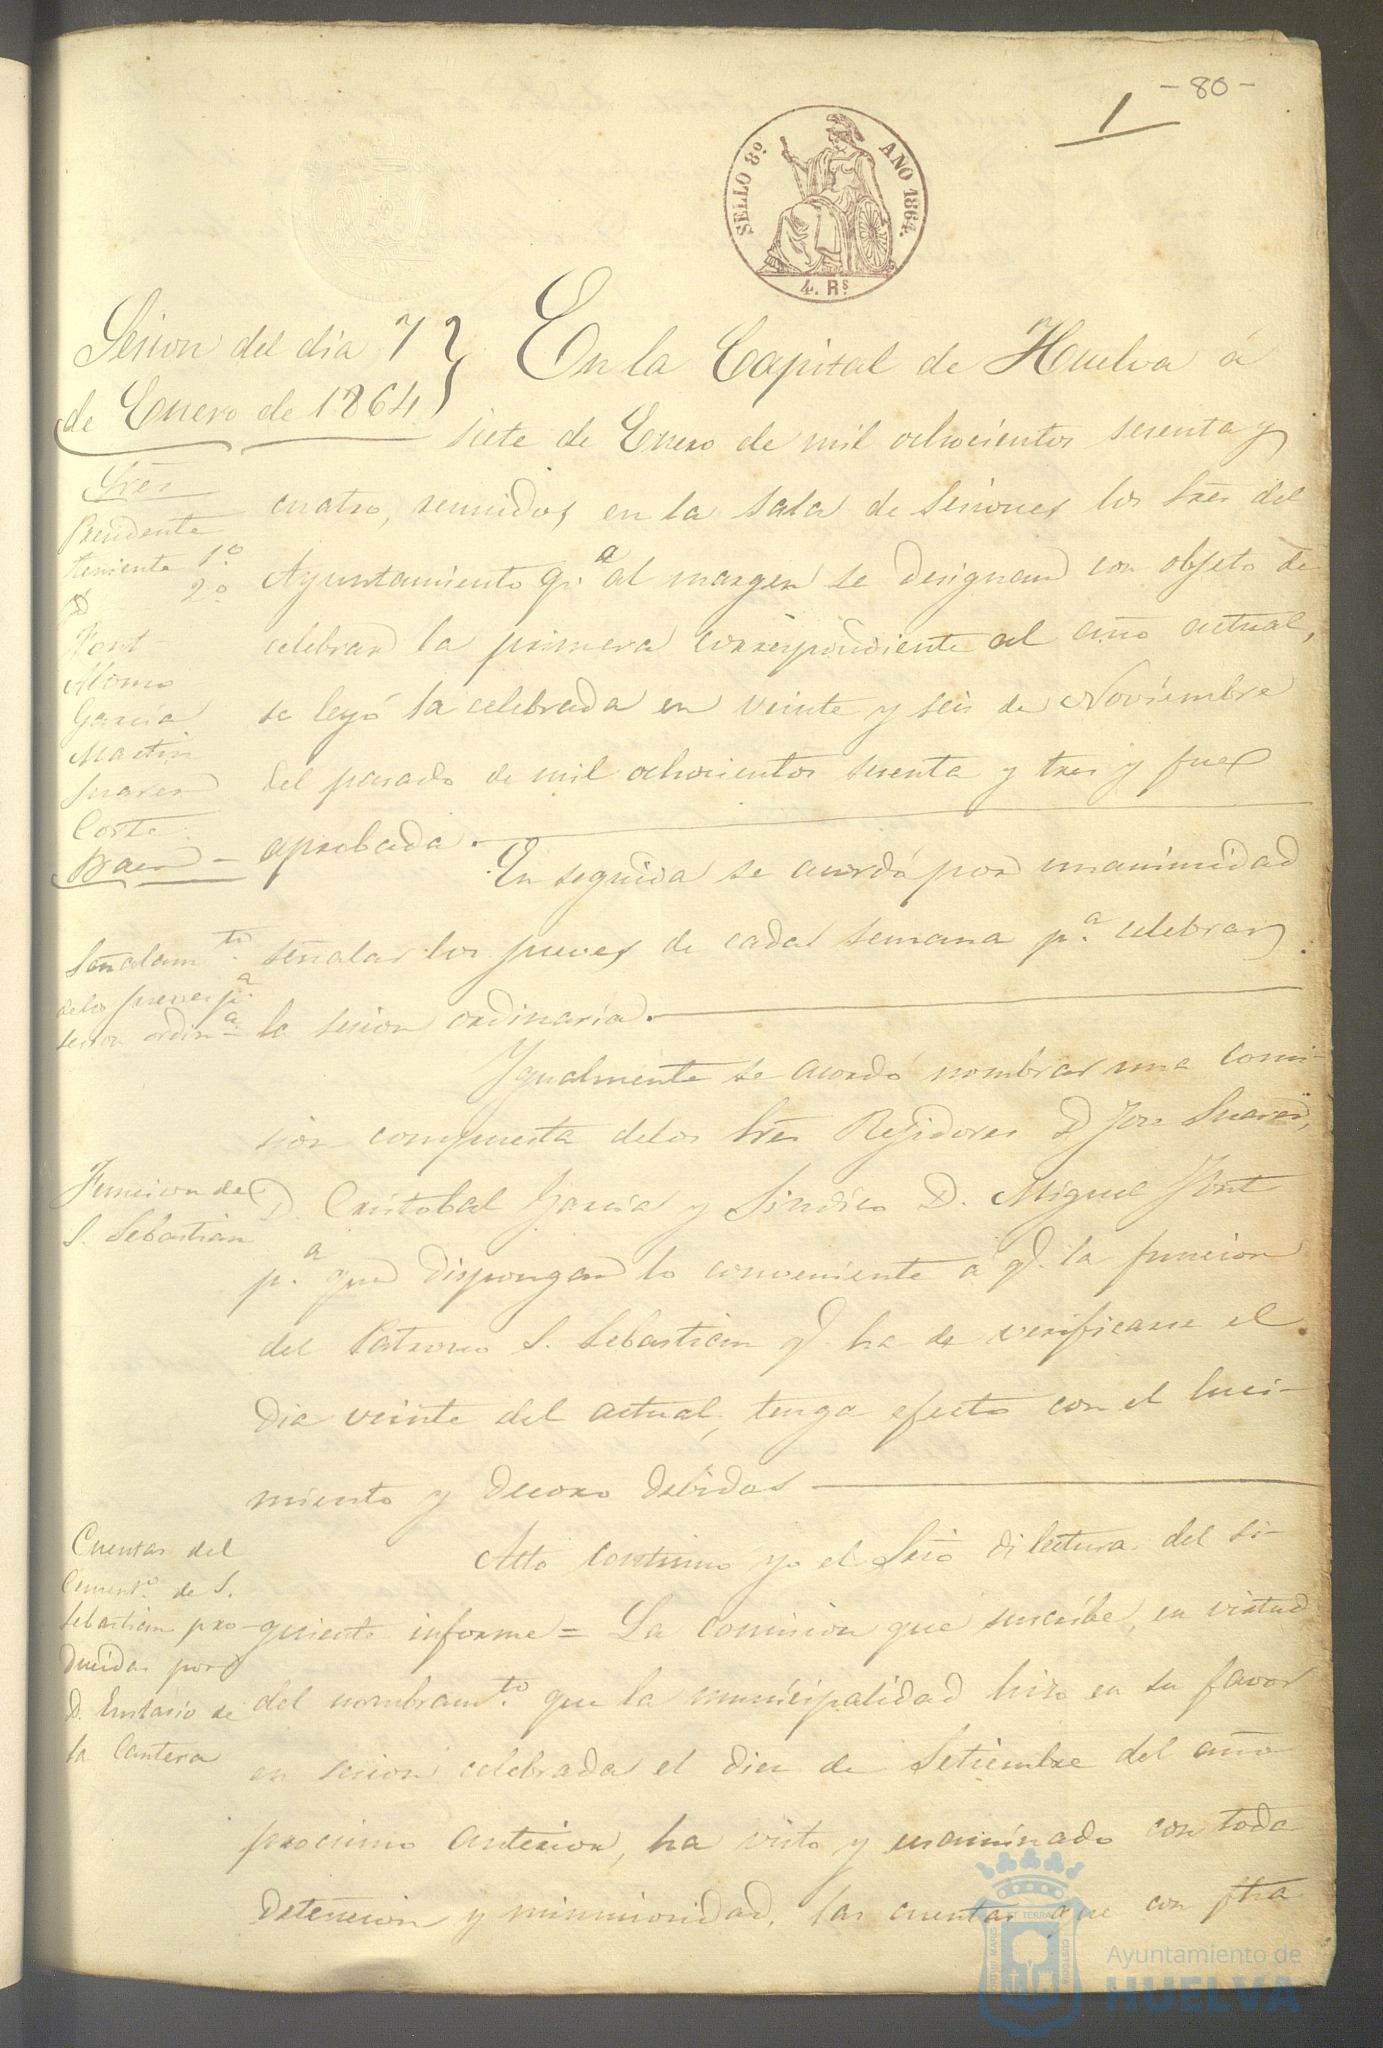 - 80 -
1
SELLO 8º AÑO 1864.
4. Rs
Sesion del dia 7
de Enero de 1864
Sres
Presidente
Teniente 1.º
2.º
D
Font
Alonso
Garcia
Martin
Suarez
Corte
Baez
En la Capital de Huelva á
siete de Enero de mil ochocientos sesenta y
cuatro, reunidos en la sala de Sesiones los Sres del
Ayuntamiento q.e al margen se designan con objeto de
celebrar la primera correspondiente al año actual,
se leyó la celebrada en veinte y seis de Noviembre
del pasado de mil ochocientos sesenta y tres y fue
aprobada.
En seguida se acordó por unanimidad
señalar los jueves de cada semana p.a celebrar
la sesion ordinaria.
Señalam.to
de los jueves p.a
sesion ordin.a
Igualmente se acordó nombrar una comi-
sion compuesta delos Sres Rejidores D Jose Suarez,
D. Cristobal Garcia y Sindico D. Miguel Font
p.a que dispongan lo conveniente a q.e la funcion
del Patrono S. Sebastian q.e ha de verificarse el
dia veinte del actual, tenga efecto con el luci-
miento y decoro debidos
Funcion de
S. Sebastian
Acto continuo yo el Srio di lectura del si-
guiente informe = La comision que suscribe, en virtud
del nombram.to que la municipalidad hizo en su favor
en sesion celebrada el diez de Setiembre del año
procsimo anterior, ha visto y ecsaminado con toda
detencion y minuciosidad, las cuentas que con fha
Cuentas del
Cement.o de S.
Sebastian pro-
ducidas por
D. Eustasio de
la Cantera
Ayuntamiento de
HUELVA